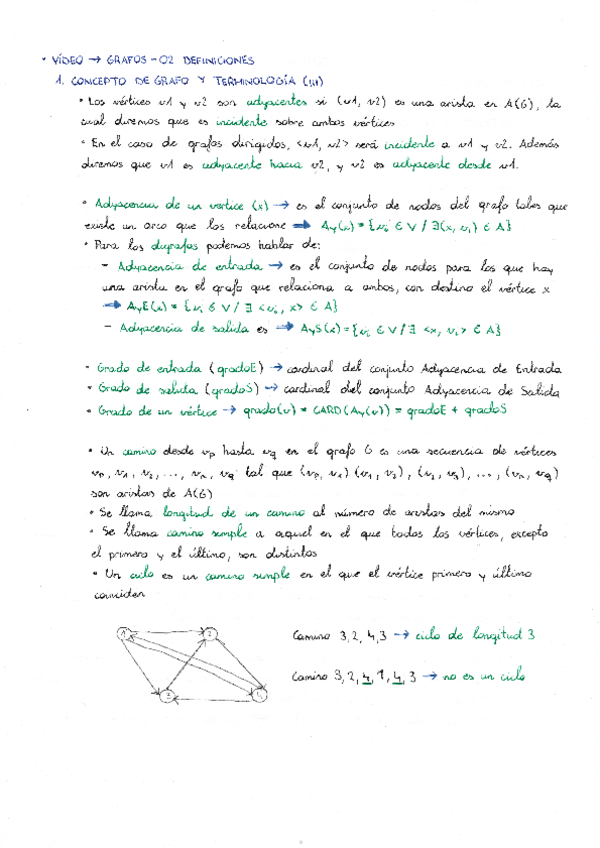 • VÍDEO → GRAFOS - 02 DEFINICIONES
1. CONCEPTO DE GRAFO Y TERMINOLOGÍA (III)
• Los vértices v1 y v2 son adyacentes si (v1, v2) es una arista en A(G), la
cual diremos que es incidente sobre ambos vértices
• En el caso de grafos dirigidos, <v1, v2> será incidente a v1 y v2. Además
diremos que v1 es adyacente hacia v2, y v2 es adyacente desde v1.
• Adyacencia de un vertice (x) → es el conjunto de nodos del grafo tales que
existe un arco que los relacione ➡ Ay(x) = {vi ∈ V / ∃(x, vi) ∈ A}
• Para los digrafos podemos hablar de:
- Adyacencia de entrada → es el conjunto de nodos para los que hay
una arista en el grafo que relaciona a ambos, con destino el vértice x
➡ AyE(x) = {vi ∈ V / ∃ <vi, x> ∈ A}
- Adyacencia de salida es ➡ AyS(x) = {vi ∈ V / ∃ <x, vi> ∈ A}
• Grado de entrada (gradoE) → cardinal del conjunto Adyacencia de Entrada
• Grado de salida (gradoS) → cardinal del conjunto Adyacencia de Salida
• Grado de un vértice → grado(v) = CARD(Ay(v)) = gradoE + gradoS
• Un camino desde vp hasta vq en el grafo G es una secuencia de vértices
vp, v1, v2, ..., vn, vq tal que (vp, v1) (v1, v2), (v2, v3), ..., (vn, vq)
son aristas de A(G)
• Se llama longitud de un camino al número de aristas del mismo
• Se llama camino simple a aquel en el que todos los vértices, excepto
el primero y el último, son distintos
• Un ciclo es un camino simple en el que el vértice primero y último
coinciden
1 2
Camino 3, 2, 4, 3 → ciclo de longitud 3
3 4
Camino 3, 2, 4, 1, 4, 3 → no es un ciclo